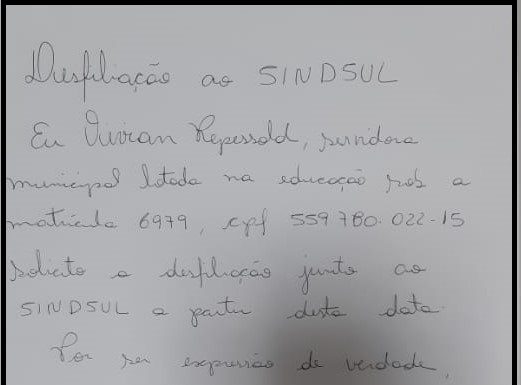 Desfiliação ao SINDSUL
Eu Vivian Repessold, servidora
municipal lotada na educação sob a
matrícula 6979, cpf 559780.022-15
solicito a desfiliação junto ao
SINDSUL a partir desta data.
Por ser expressão de verdade,